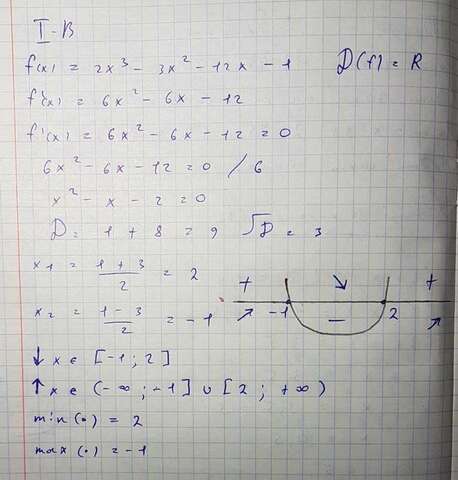 I-B
f(x) = 2x³ - 3x² - 12x - 1 D(f) = R
f'(x) = 6x² - 6x - 12
f'(x) = 6x² - 6x - 12 = 0
6x² - 6x - 12 = 0 / 6
x² - x - 2 = 0
D = 1 + 8 = 9 √D = 3
x₁ = (1 + 3)/2 = 2
x₂ = (1 - 3)/2 = -1
+ ↘ +
↗ -1 - 2 ↗
↓ x ∈ [-1; 2]
↑ x ∈ (-∞; -1] ∪ [2; +∞)
min(•) = 2
max(•) = -1